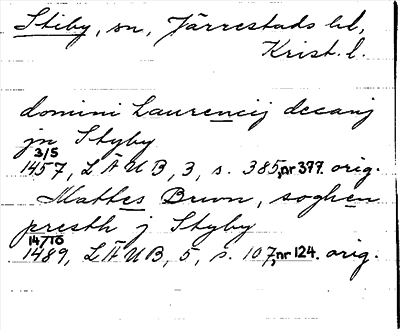 Stiby, sn, Järrestads hd,
Krist. l.
domini Laurencij decanj
jn Styby
3/5
1457, LÄUB, 3, s. 385, nr 377. orig.
Mattes Brvn, soghen
presth j Styby
14/10
1489, LÄUB, 5, s. 107, nr 124. orig.